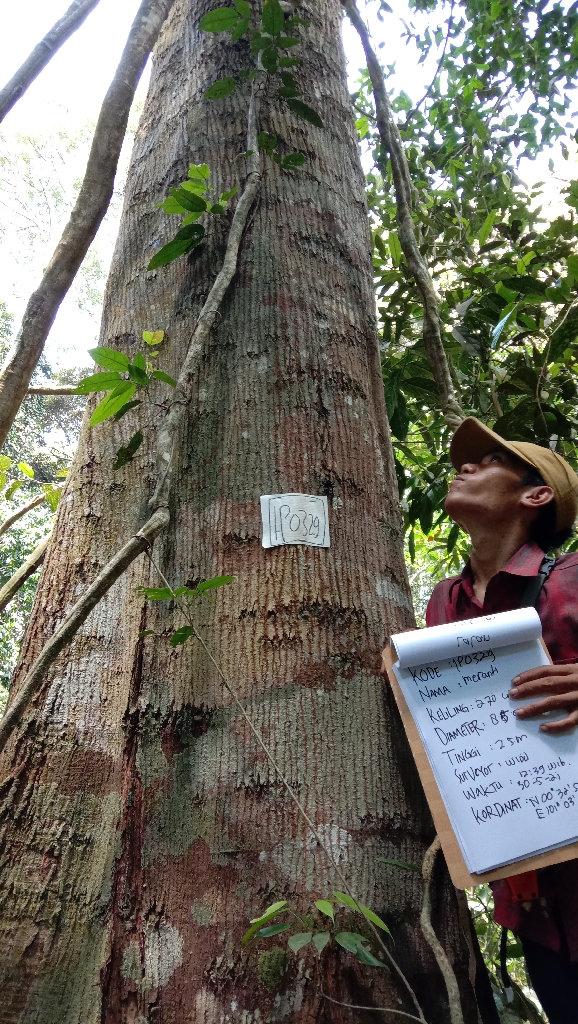 1P0329
KODE : 1P0329
Nama : meranti
KELILING : 270
DIAMETER : 85
TINGGI : 25m
Surveyor : wiwi
WAKTU : 12:39 wib.
30-5-21
KORDINAT : N 00° 32'
E 101° 03'